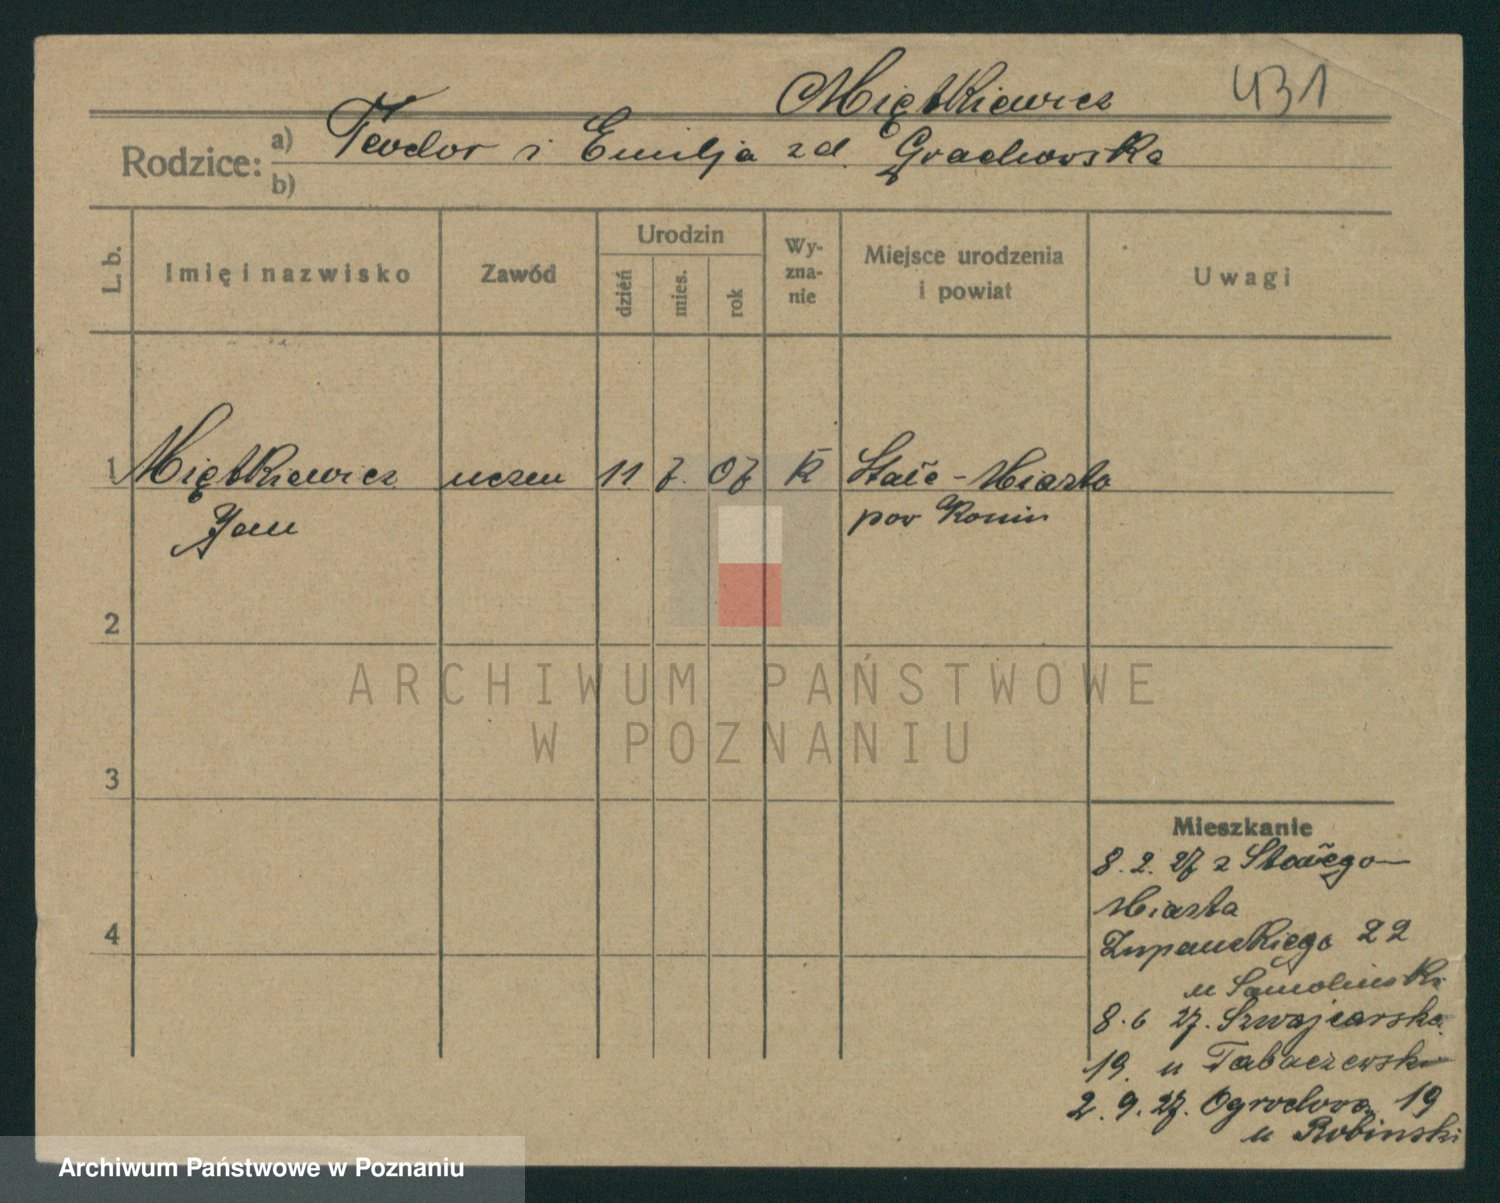 Miętkiewicz 431
Rodzice: a) Teodor i Emilja zd. Grachowska
b)
L. b. Imię i nazwisko Zawód Urodzin dzień mies. rok Wy-zna-nie Miejsce urodzenia i powiat Uwagi
1 Miętkiewicz uczeń 11 7. 07 K Stare-Miasto
Jan pow Konin
2
3
4
Mieszkanie
8.2.27 z Starego
Miasta
Żupańskiego 22
u Samolinski
8.6 27. Szwajcarska
19. u Tabaczewski
2.9.27. Ogrodowa 19
u Robinski
ARCHIWUM PAŃSTWOWE
W POZNANIU
Archiwum Państwowe w Poznaniu